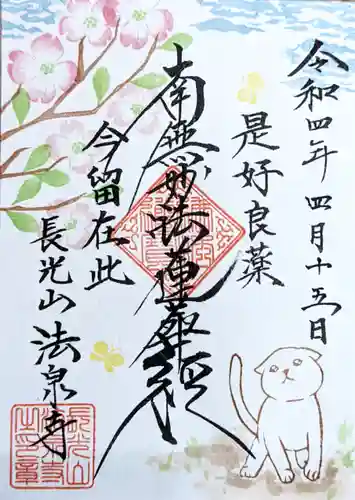 令和四年四月十五日
是好良薬
南無妙法蓮華経
今留在此
長光山法泉寺